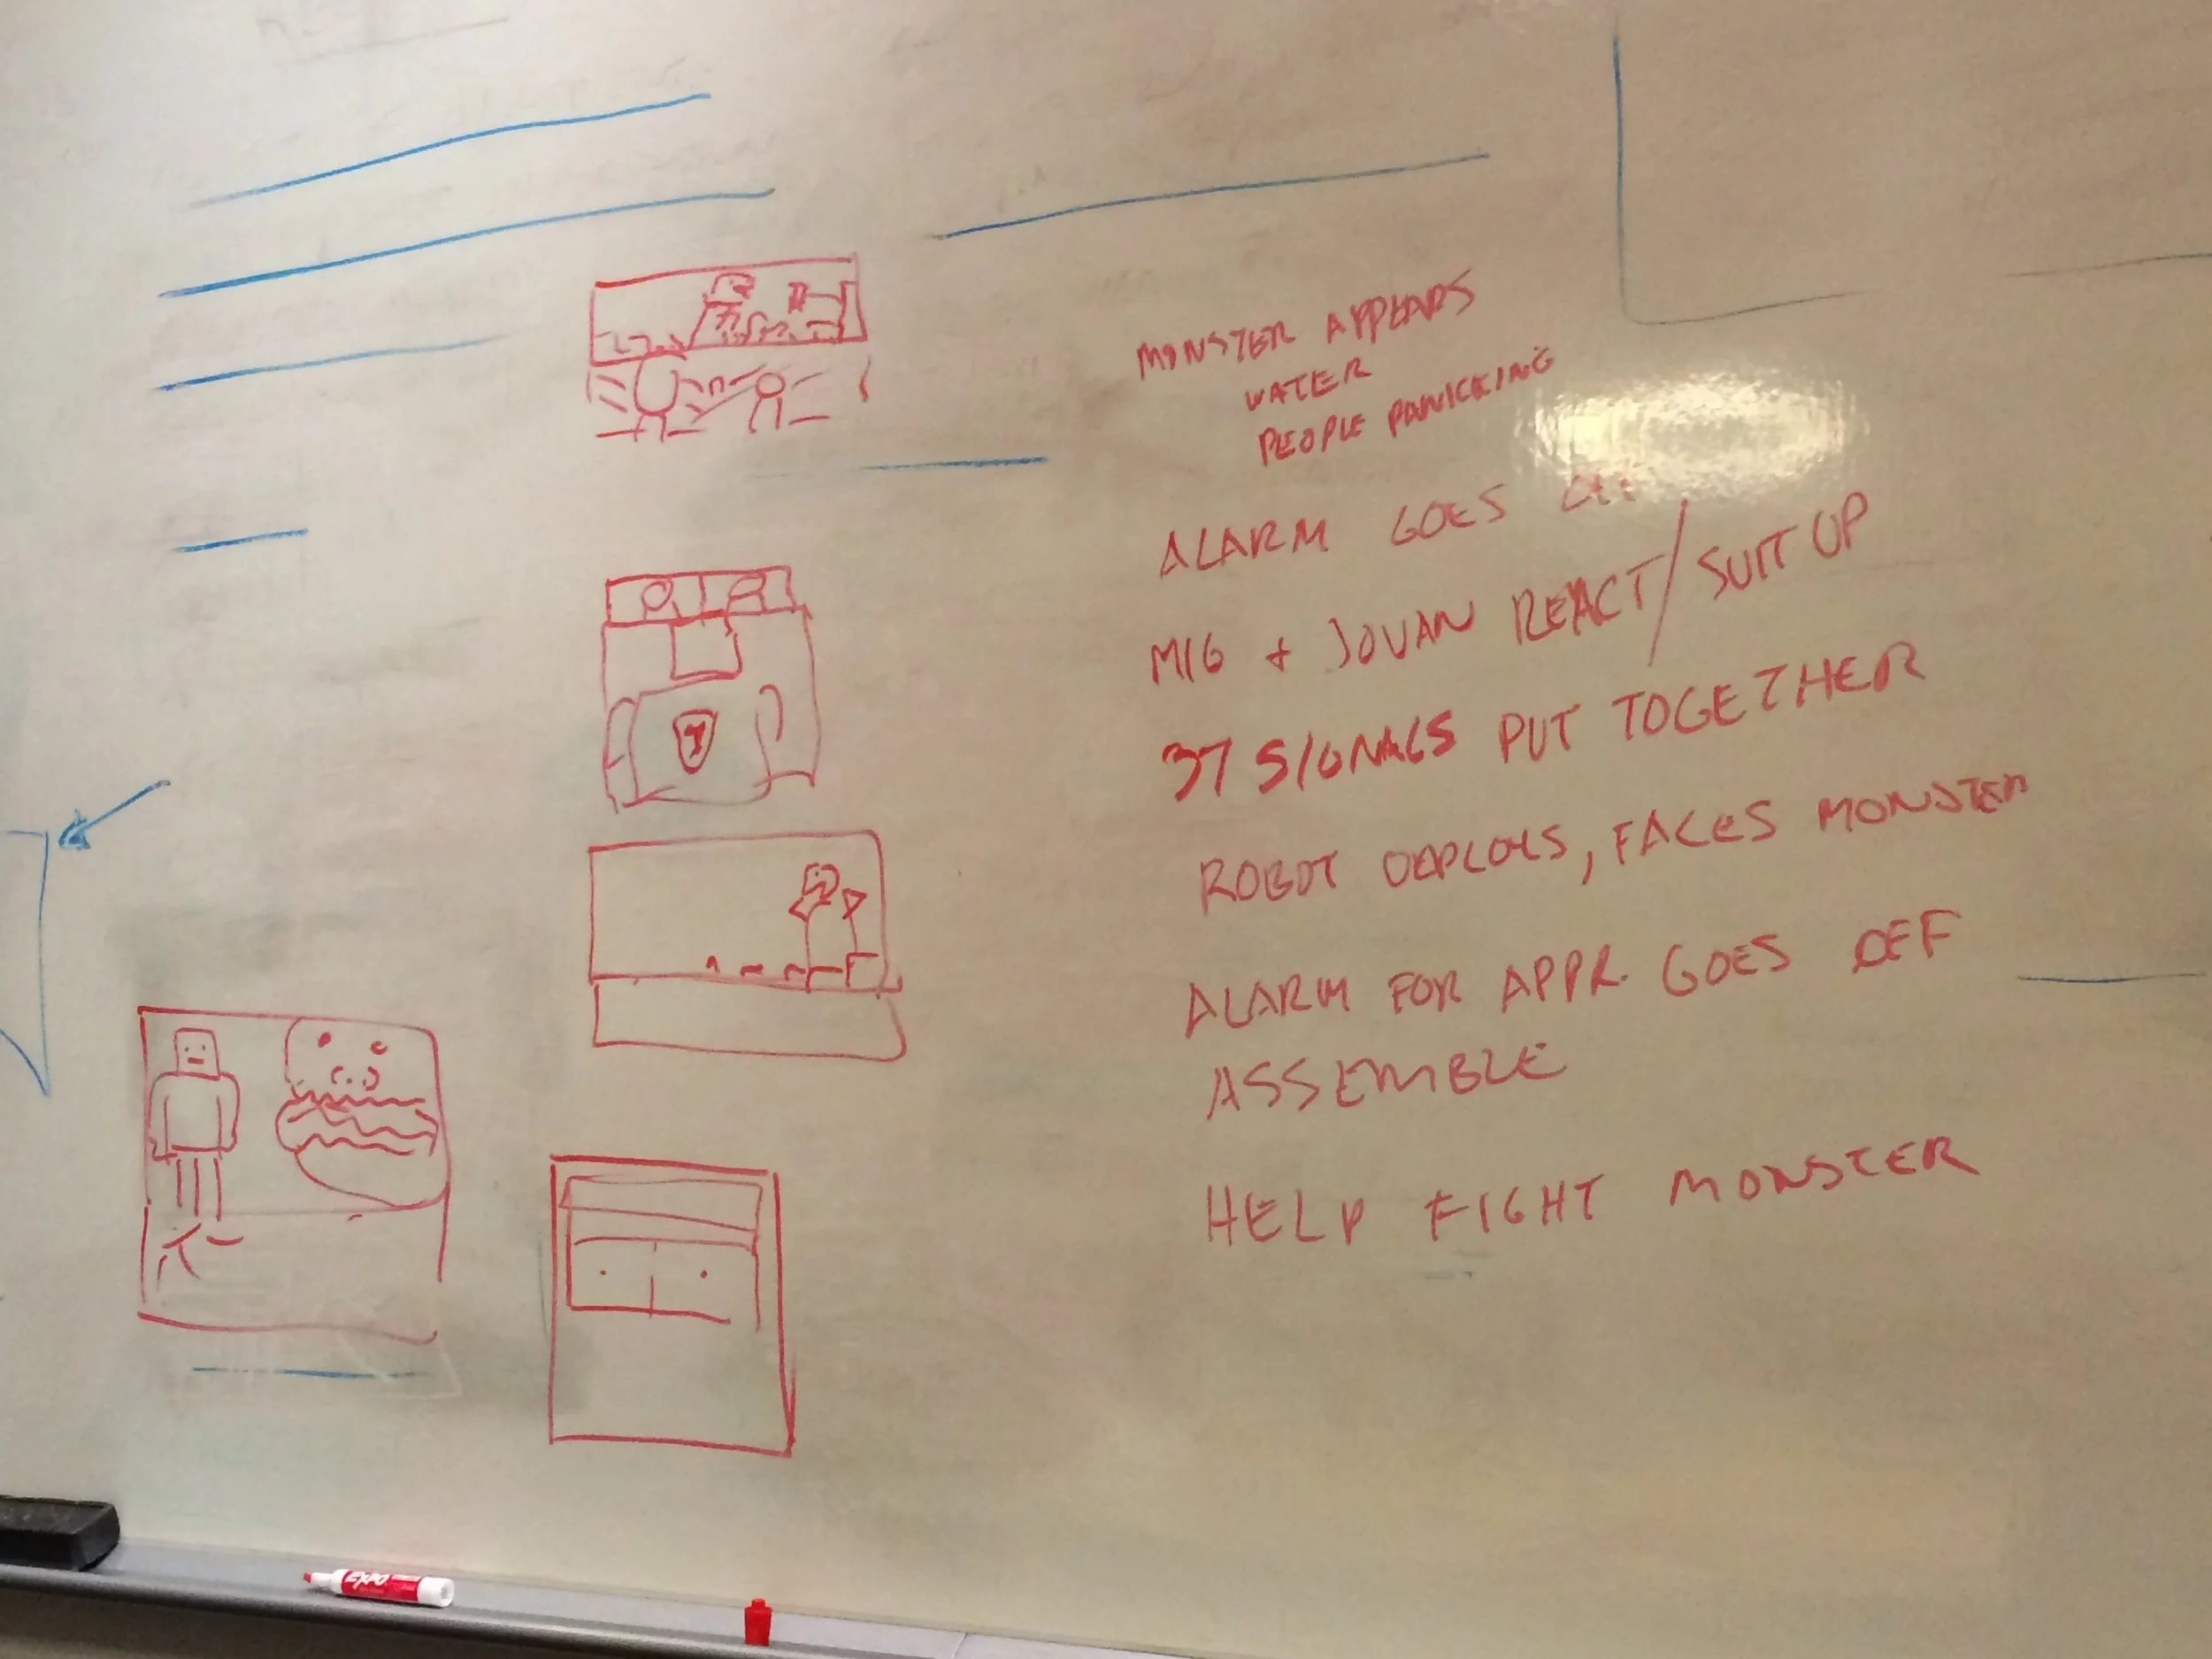 MONSTER APPEARS
WATER
PEOPLE PANICKING
ALARM GOES
MIG + JOVAN REACT/SUIT UP
37 SIGNALS PUT TOGETHER
ROBOT DEPLOYS, FACES MONSTER
ALARM FOR APPR. GOES OFF
ASSEMBLE
HELP FIGHT MONSTER
EXPO